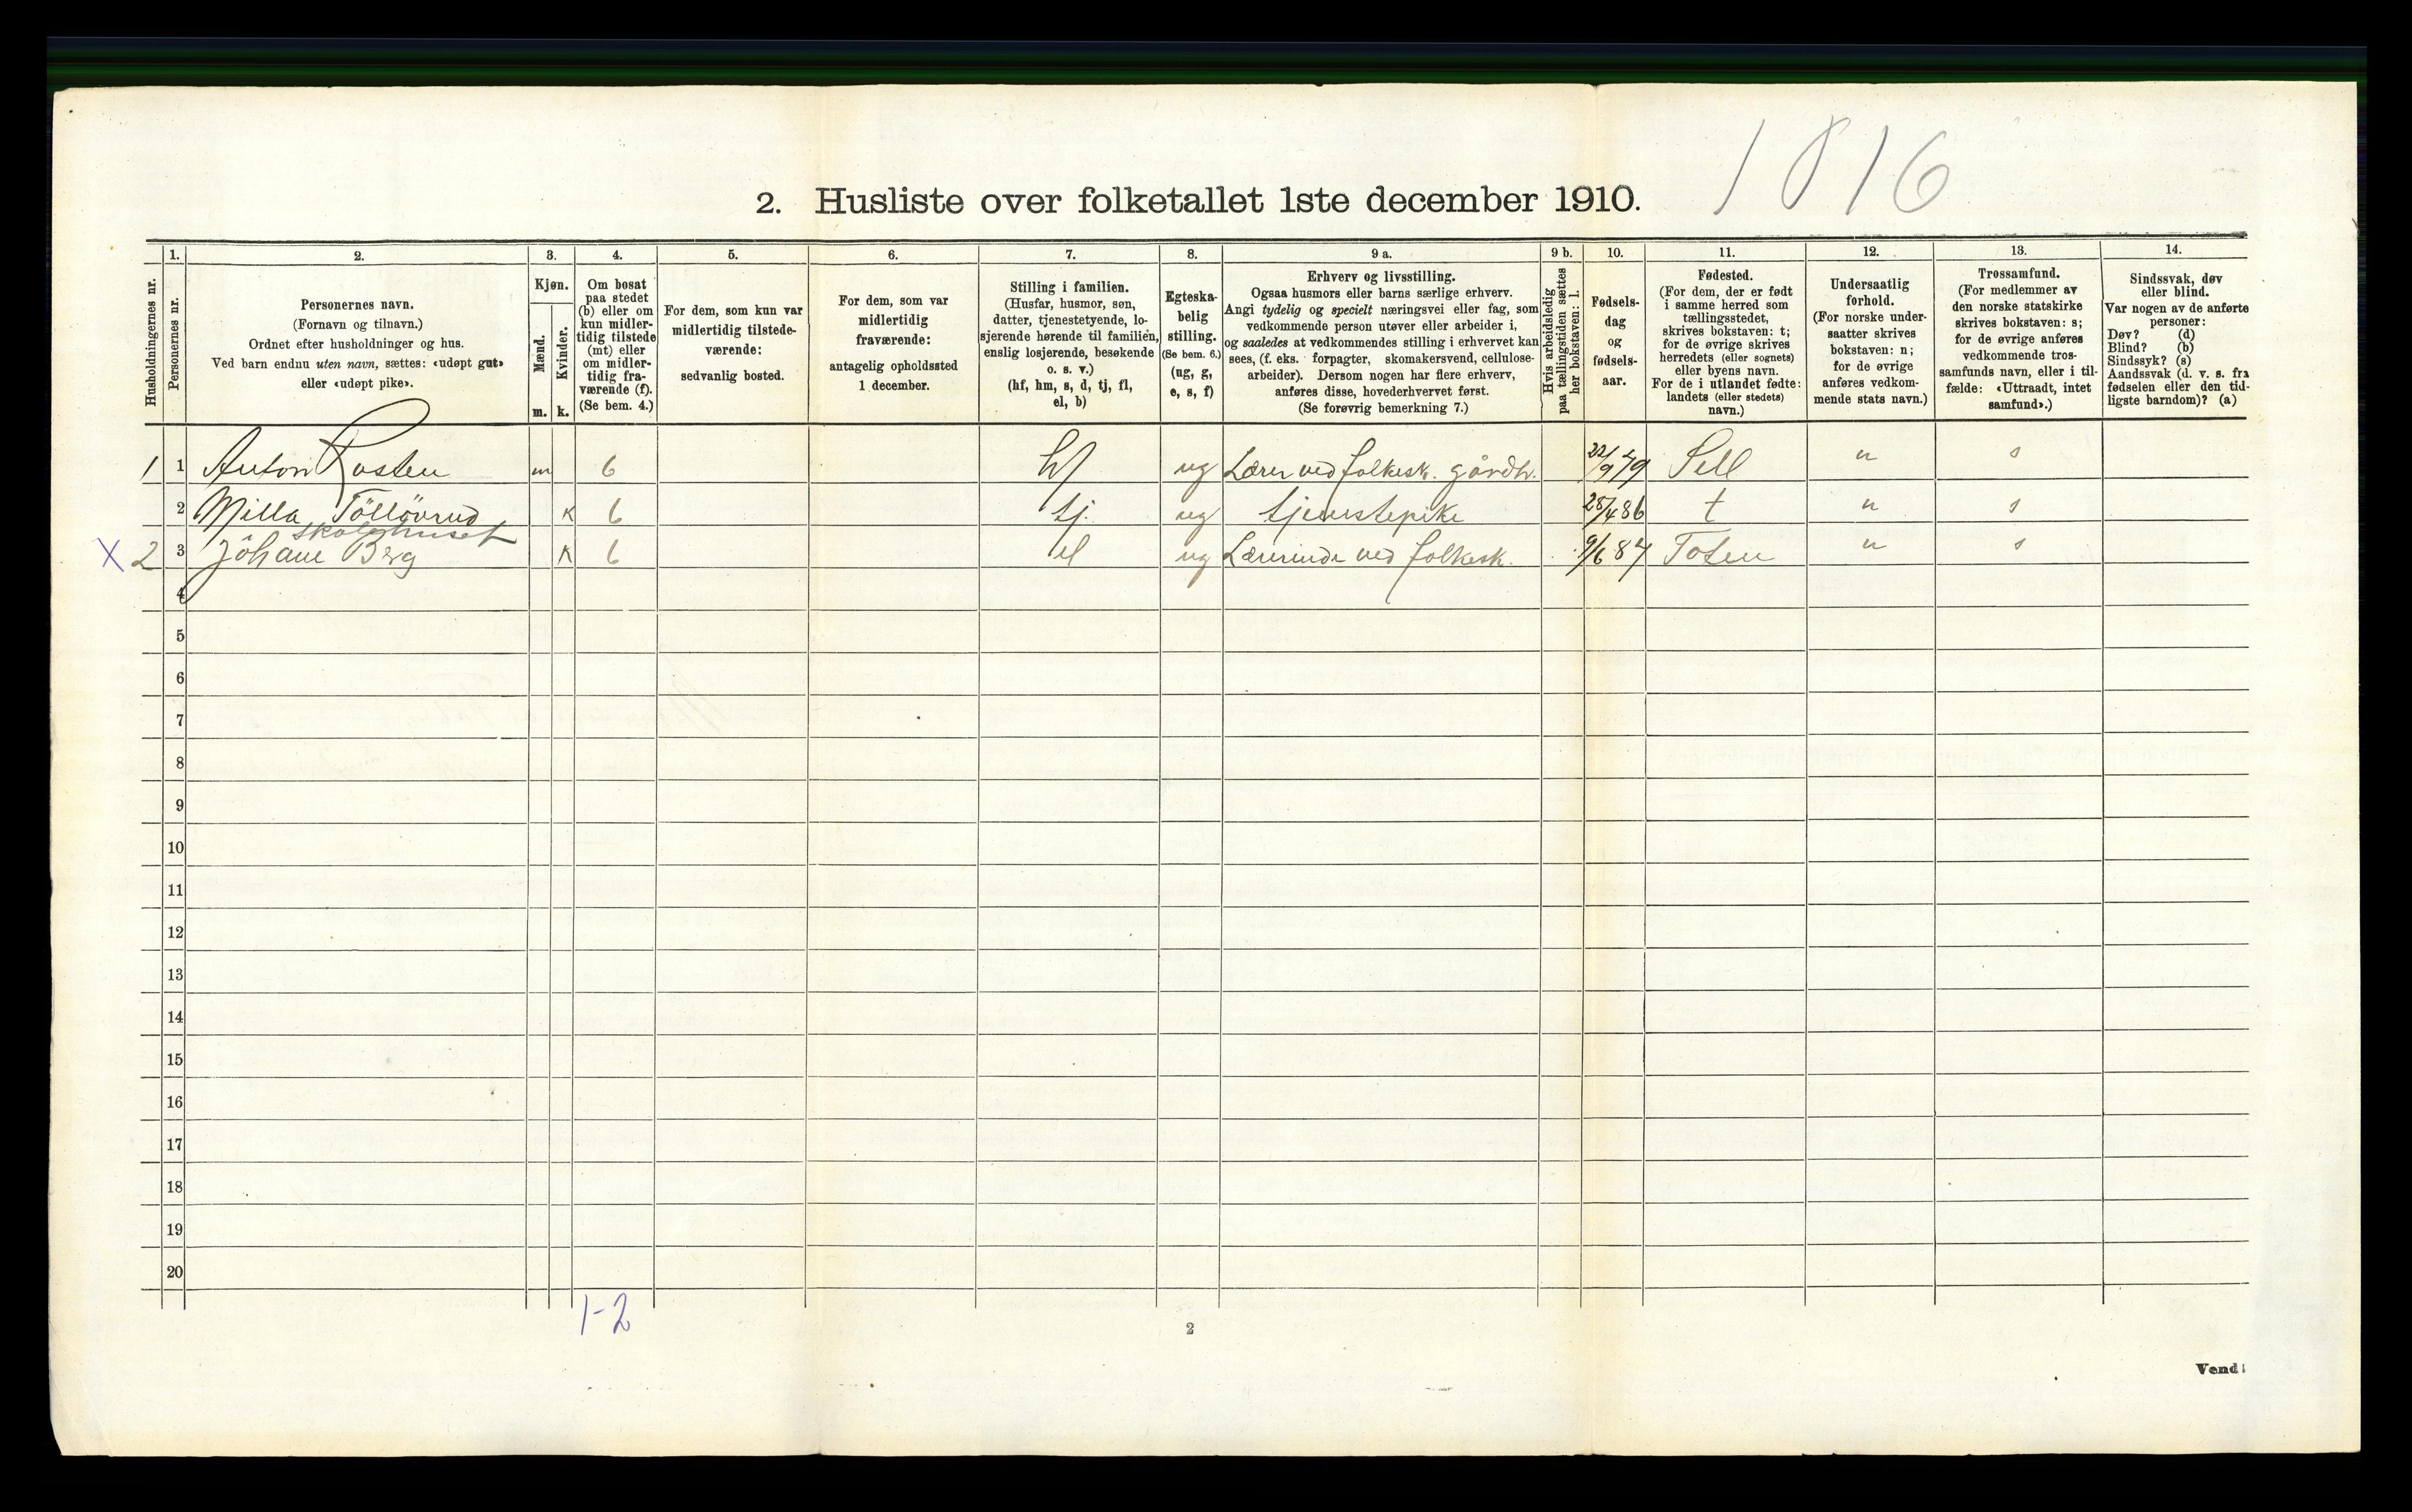 1816
2. Husliste over folketallet 1ste december 1910.
Husholdningernes nr.
1. Personernes nr.
2. Personernes navn. (Fornavn og tilnavn.) Ordnet efter husholdninger og hus. Ved barn endnu uten navn, sættes: «udøpt gut» eller «udøpt pike».
3. Kjøn. Mænd. m. Kvinder. k.
4. Om bosat paa stedet (b) eller om kun midlertidig tilstede (mt) eller om midlertidig fraværende (f). (Se bem. 4.)
5. For dem, som kun var midlertidig tilstedeværende: sedvanlig bosted.
6. For dem, som var midlertidig fraværende: antagelig opholdssted 1 december.
7. Stilling i familien. (Husfar, husmor, søn, datter, tjenestetyende, losjerende hørende til familien, enslig losjerende, besøkende o. s. v.) (hf, hm, s, d, tj, fl, el, b)
8. Egteskabelig stilling. (Se bem. 6.) (ug, g, e, s, f)
9 a. Erhverv og livsstilling. Ogsaa husmors eller barns særlige erhverv. Angi tydelig og specielt næringsvei eller fag, som vedkommende person utøver eller arbeider i, og saaledes at vedkommendes stilling i erhvervet kan sees, (f. eks. forpagter, skomakersvend, cellulosearbeider). Dersom nogen har flere erhverv, anføres disse, hovederhvervet først. (Se forøvrig bemerkning 7.)
9 b. Hvis arbeidsledig paa tællingstiden sættes her bokstaven: l.
10. Fødselsdag og fødselsaar.
11. Fødested. (For dem, der er født i samme herred som tællingsstedet, skrives bokstaven: t; for de øvrige skrives herredets (eller sognets) eller byens navn. For de i utlandet fødte: landets (eller stedets) navn.)
12. Undersaatlig forhold. (For norske undersaatter skrives bokstaven: n; for de øvrige anføres vedkommende stats navn.)
13. Trossamfund. (For medlemmer av den norske statskirke skrives bokstaven: s; for de øvrige anføres vedkommende trossamfunds navn, eller i tilfælde: «Uttraadt, intet samfund».)
14. Sindssvak, døv eller blind. Var nogen av de anførte personer: Døv? (d) Blind? (b) Sindssyk? (s) Aandssvak (d. v. s. fra fødselen eller den tidligste barndom)? (a)
1 1 Anton Rusten m b hf ug Lærer ved folkesk. gårdb. 22/9 79 Sell n s
2 Milla Töllövrud k b tj. ug tjenstepike 28/4 86 t n s
skolehuset
X 2 3 Johane Berg k b el ug Lærerinde ved folkesk. 9/6 87 Toten n s
4
5
6
7
8
9
10
11
12
13
14
15
16
17
18
19
20
1-2
2
Vend!